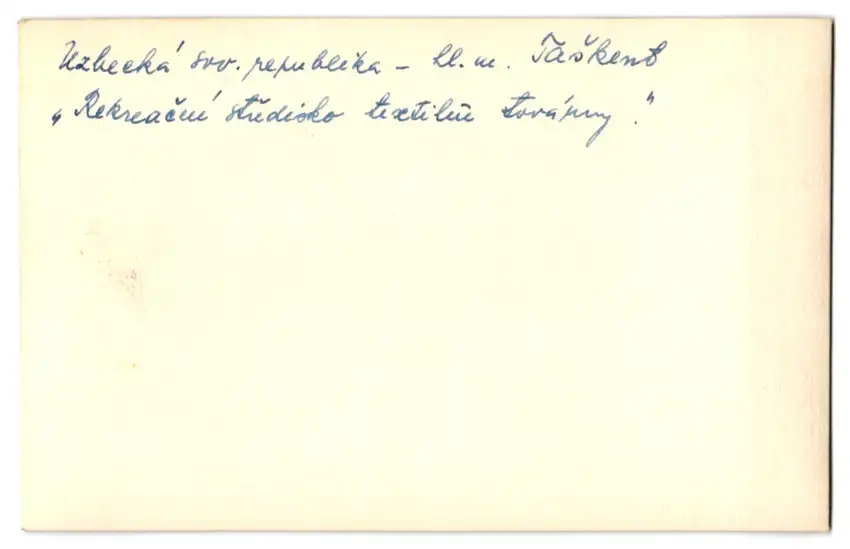 Uzbecká sov. republika - hl. m. Taškent
„Rekreační středisko textilní továrny."